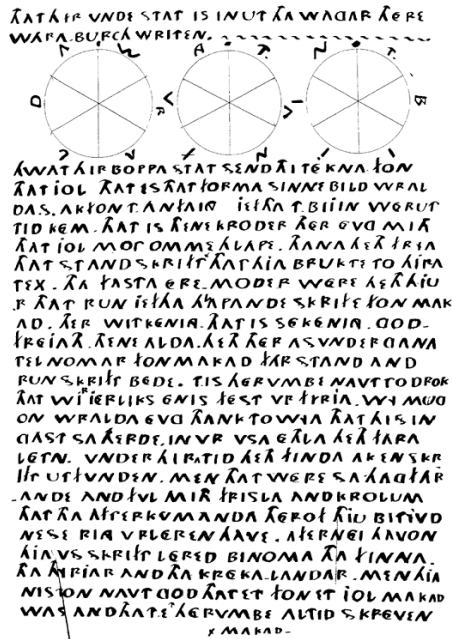 THAT HIR VNDE STAT IS IN UT THA WAGAR THERE
WARA.BURCH WRITEN.
HWAT HIR BOPPA STAT SEND THI TEKNA FON
THAT JOL. THAT IS THAT FORMA SINNEBILD WRAL
DAS. AK FON T.ANFANG JEFTHA T.BIJIN WERUT
TID KEM. THAT IS THENE KRODER THER EVG MITH
THAT JOL MOT OMME HLAPE. THANA HETH FRYA
THAT STANDSKRIFT THAT HJA BRUKTE TO HJRA
TEX. THA FASTA ERE.MODER WERE HETH HJU
R THAT RUN JEFTHA HLAPANDE SKRIFT FON MAK
AD. THER WITKENING. THAT IS SEKENING. GOD-
FREIATH. THENE ALDA. HETH THER ASVNDERGANA
TELNOMAR FON MAKAD FAR STAND AND
RUNSKRIFT BEDE. T IS THERVMBE NAVT TO DROK
THAT WI.R JERLIKS ENIS FEST VR FYRIA. WY MUG
ON WRALDA EVG THANK TO WYA THAT HI SIN
GAST SA HERDE. IN VR VSA ETHLA HETH FARA
LETN. VNDER HIRA TID HETH FINDA AK EN SKR
IFT UTFVNDEN. MEN THAT WERE SA HAGFAR
ANDE AND FVL MITH FRISLA AND KROLUM
THAT THA AFTERKVMANDA THEROF THJU BITJVD
NESE RING VRLEREN HAVE. AFTERNEI HAVON
HJA VS SKRIFT LERED BINOMA THA FINNA.
THA THYRJAR AND THA KREKALANDAR. MEN HJA
NISTON NAVT GOD THAT ET FON ET JOL MAKAD
WAS AND THAT.ET THERVMBE ALTID SKREVEN
x MAKAD.